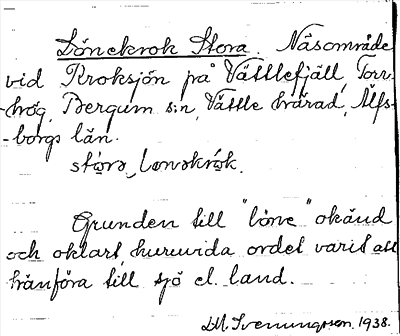 Lönekrok Stora. Näsområde
vid Kroksjön på Vättlefjäll, Torr-
-hög, Bergum s:n, Vättle härad, Älfs-
-borgs län.
stóra, lønəkrók.
Grunden till "löne" okänd
och oklart, huruvida ordet varit att
hänföra till sjö el. land.
D.M. Svenungsson. 1938.